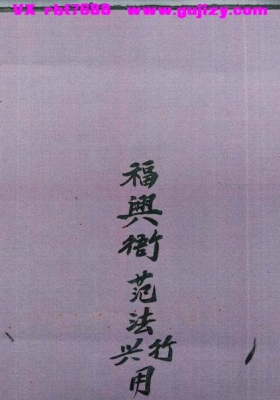 VX rbt7688 www.gujizy.com
福興衙
范法兴
竹用